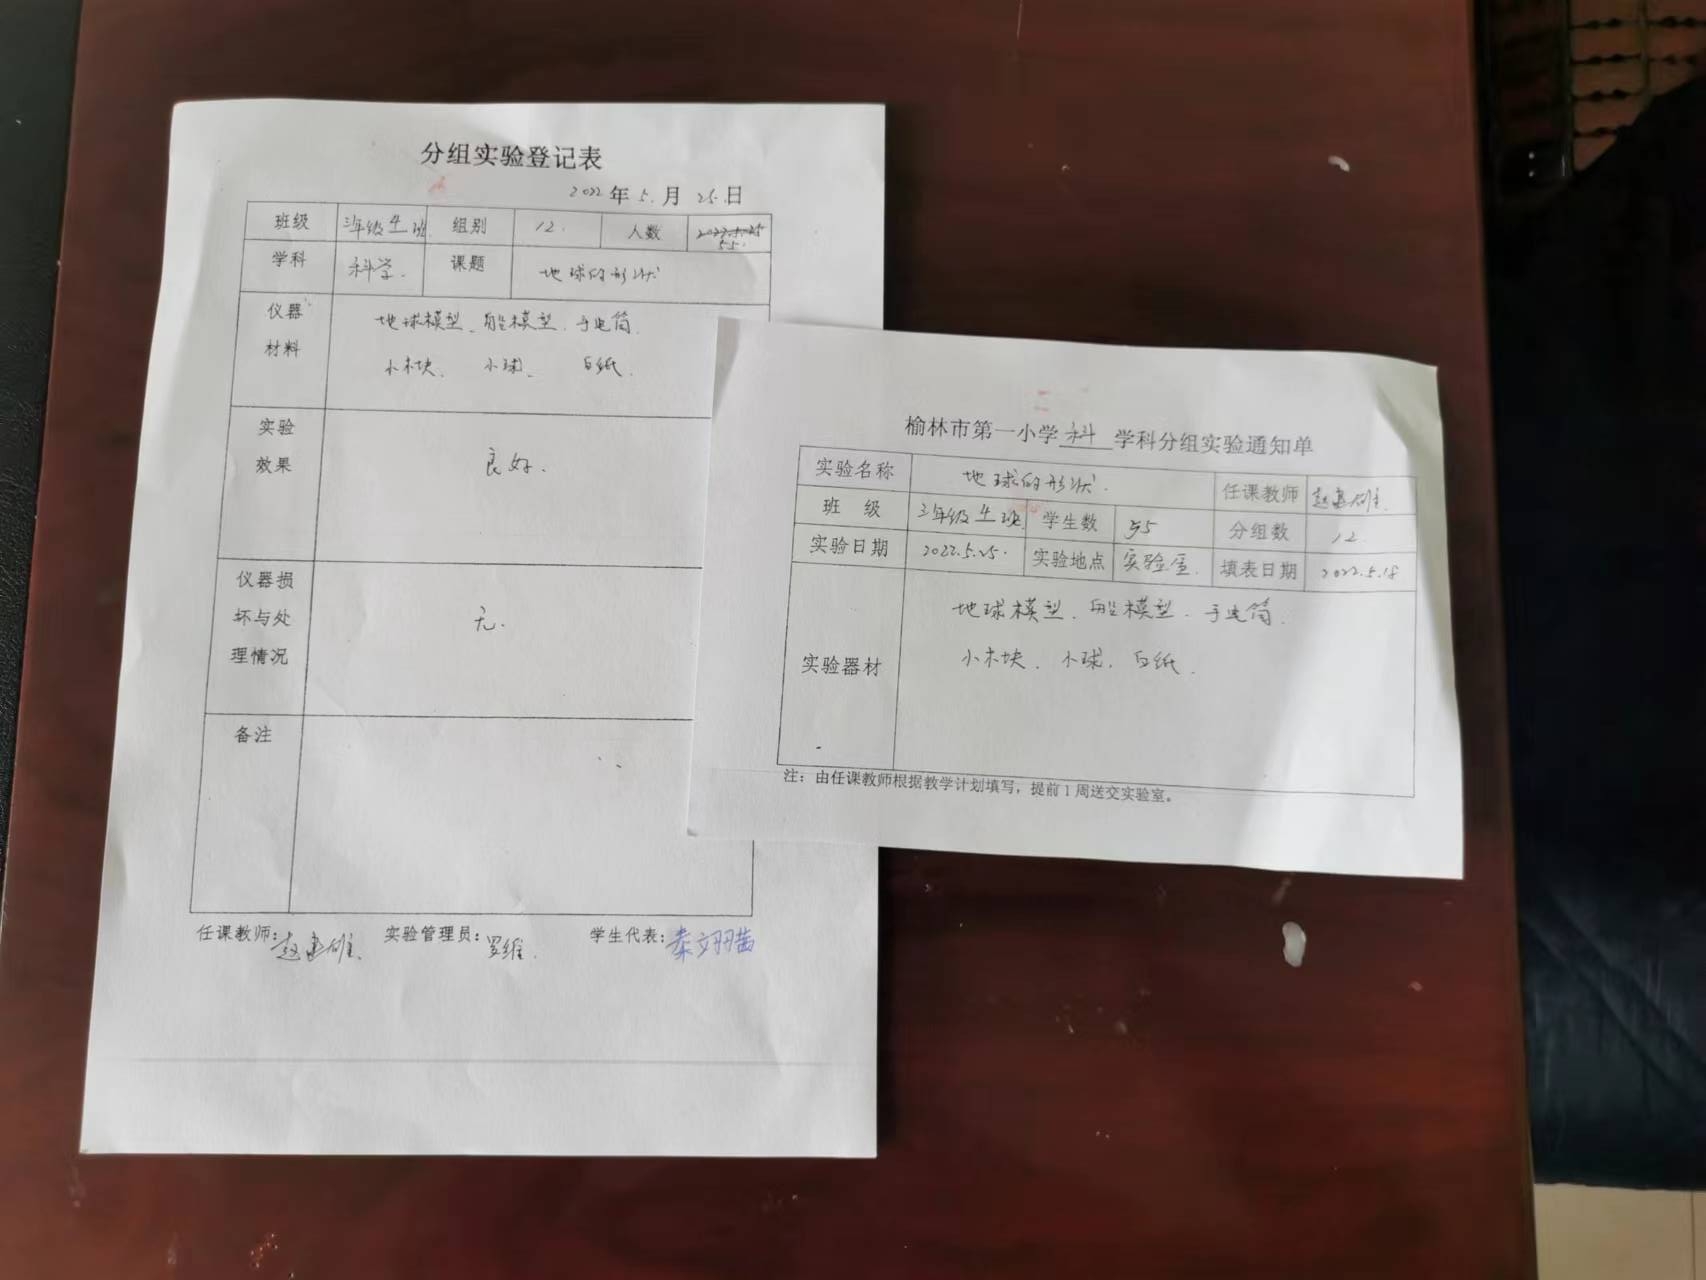 分组实验登记表
2022年5.月25.日
班级 三年级4班. 组别 12. 人数 2022.5.25 55.
学科 科学. 课题 地球的形状
仪器材料 地球模型、船模型.手电筒.
小木块、小球、白纸.
实验效果 良好.
仪器损坏与处理情况 无.
备注
任课教师: 实验管理员:罗维. 学生代表:秦文玥茜
榆林市第一小学科学科分组实验通知单
实验名称 地球的形状. 任课教师
班级 三年级4班. 学生数 55 分组数 12
实验日期 2022.5.25. 实验地点 实验室. 填表日期 2022.5.18
实验器材 地球模型、船模型.手电筒.
小木块、小球.白纸.
注：由任课教师根据教学计划填写，提前1周送交实验室。